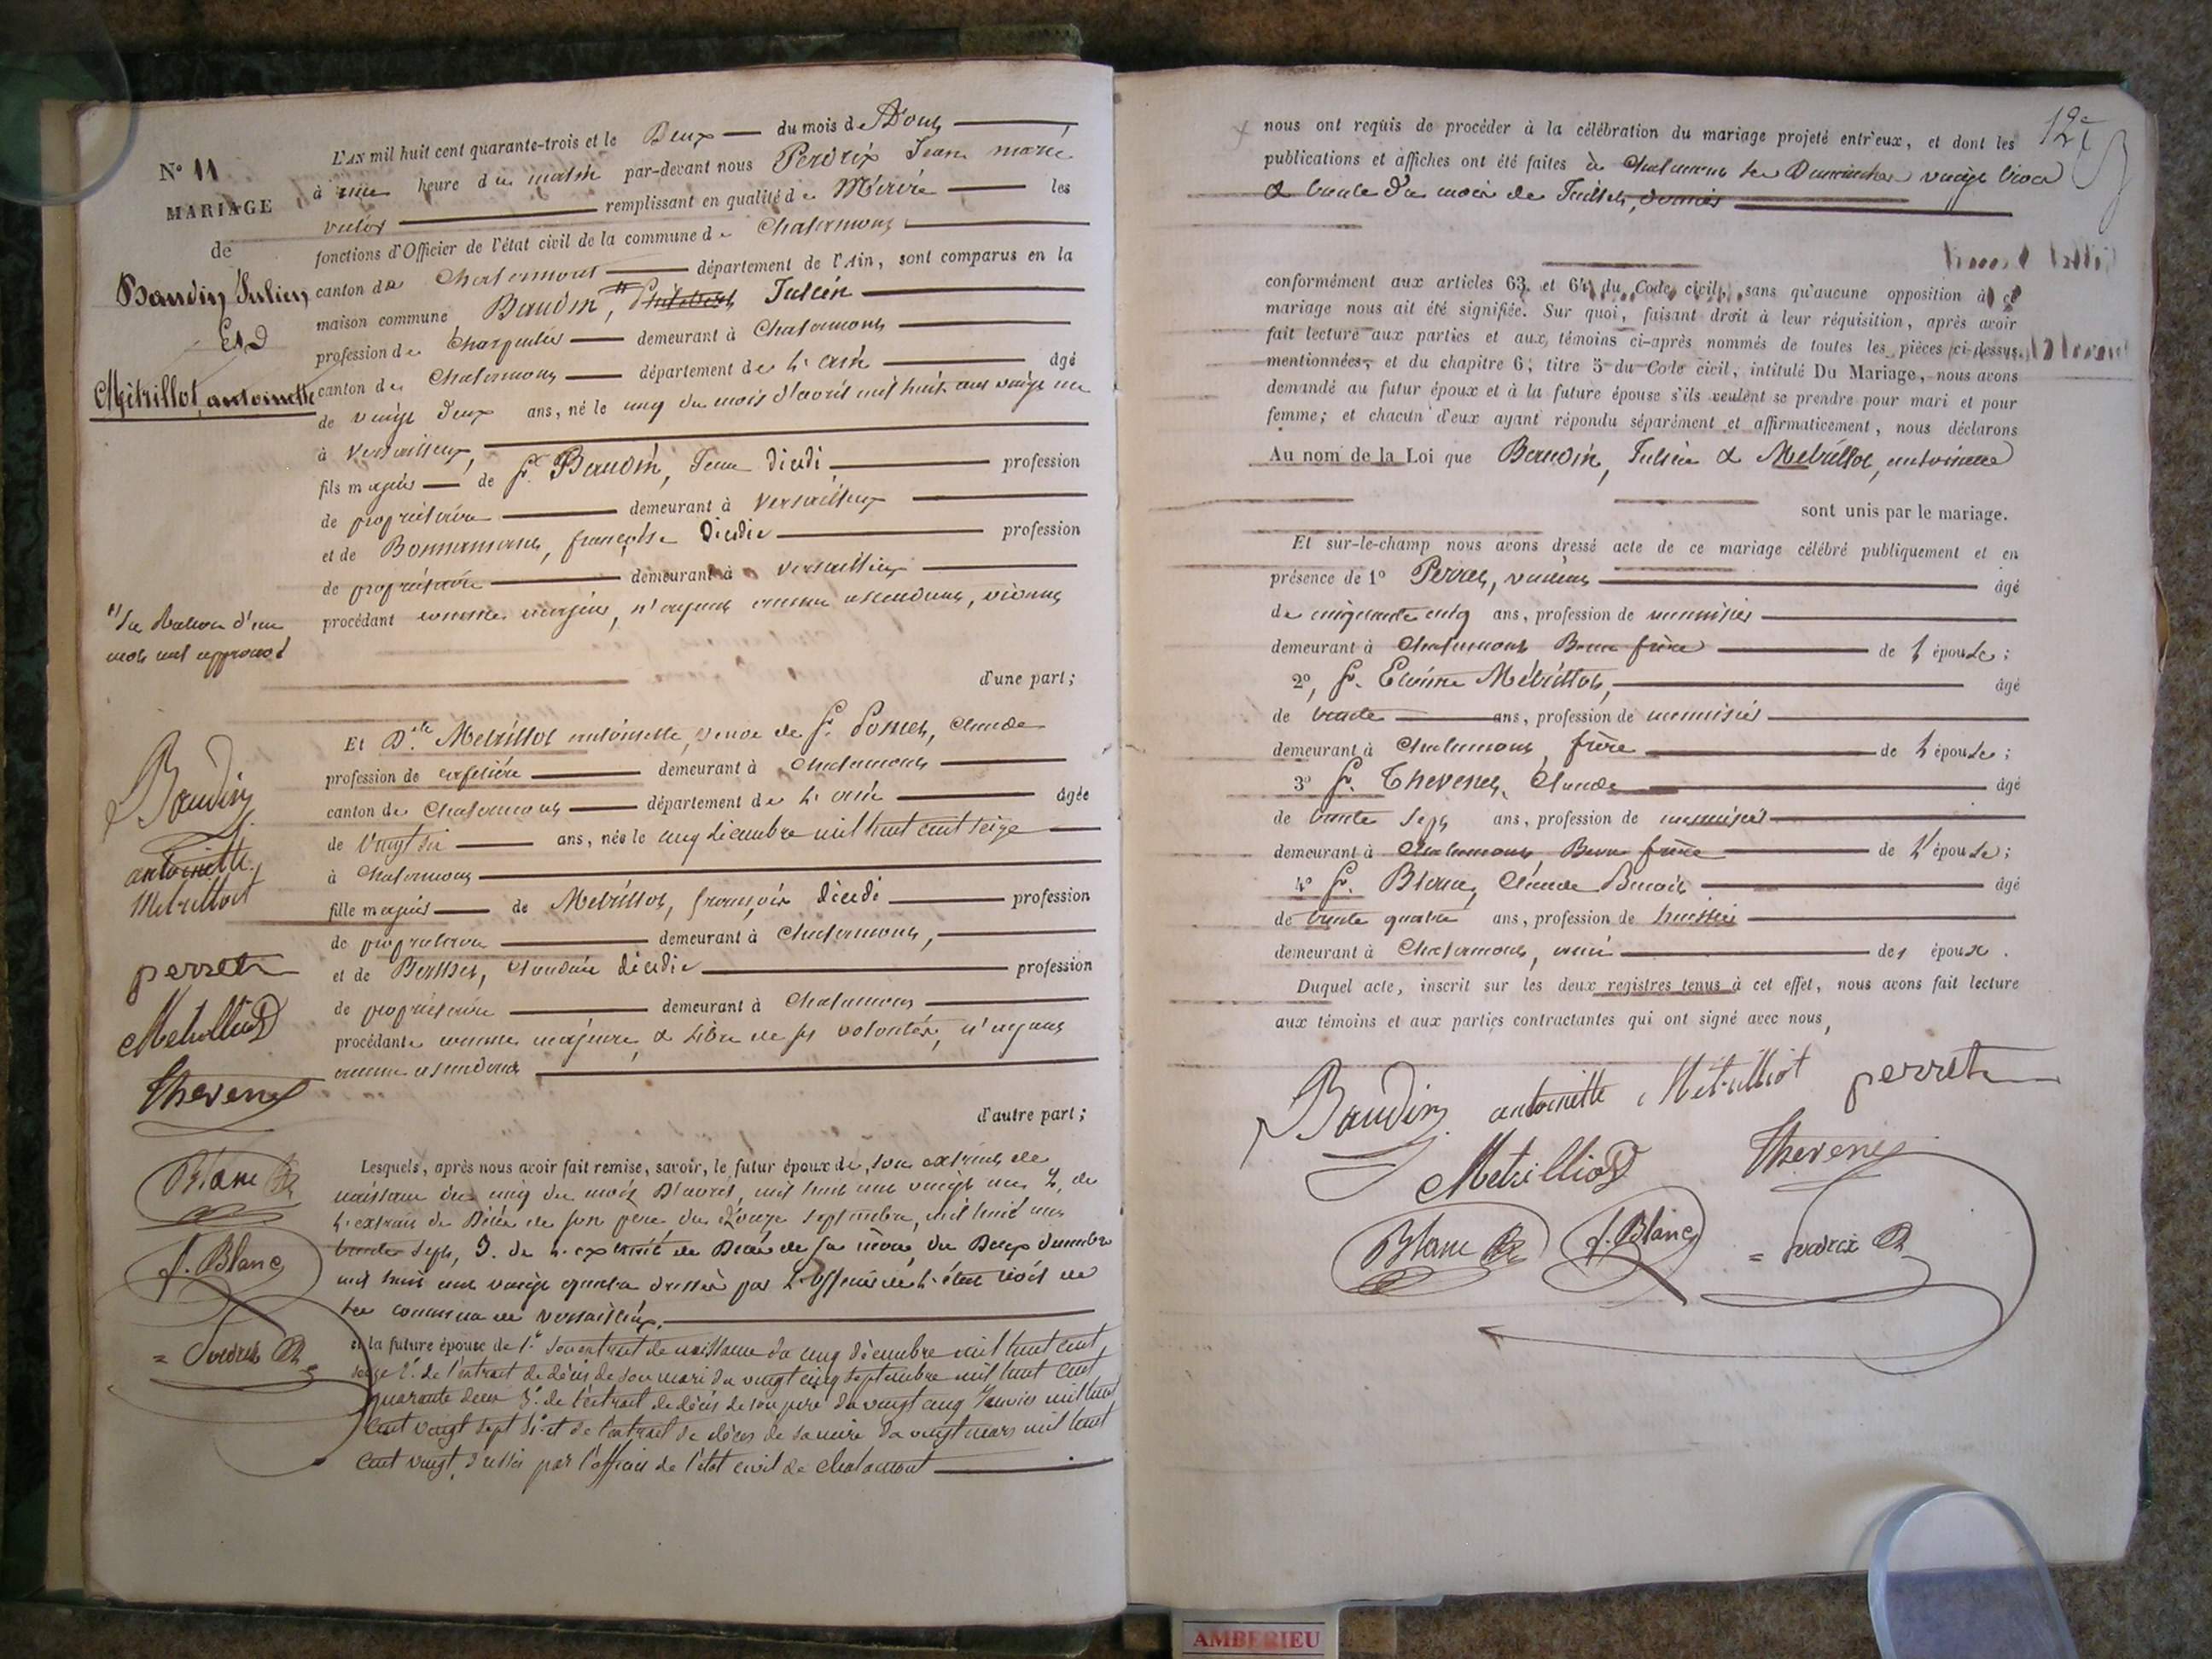 N° 11
MARIAGE
de
Baudin Julien
Et
Metrillot, antoinette
L'AN mil huit cent quarante-trois et le Deux du mois d'Aout
à une heure du matin par-devant nous Perdrix Jean marie
remplissant en qualité de Maire les
fonctions d'Officier de l'état civil de la commune de Chalamont
canton de Chalamont département de l'Ain, sont comparus en la
maison commune Baudin, Julien
profession de Charpentier demeurant à Chalamont
canton de Chalamont département de L'ain âgé
de vingt deux ans, né le cinq du mois d'avril mil huit cent vingt un
à Versailleux,
fils majeur de f. Baudin, Jean décédé profession
de propriétaire demeurant à Versailleux
et de Bonnamour, françoise Décédée profession
de propriétaire demeurant à Versailleux
procédant comme majeur, n'ayant aucun ascendant, vivant
d'une part;
mot est approuvé
Et D.lle Metrillot antoinette, veuve de f. Claude
profession de cafetière demeurant à Chalamont
canton de Chalamont département de L'ain âgée
de vingt six ans, née le cinq décembre mil huit cent seize
à Chalamont
fille majeure de Metrillot, françois décédé profession
de propriétaire demeurant à Chalamont,
et de Claudine décédée profession
de propriétaire demeurant à Chalamont
procédante comme majeure, & Libre de ses volontés, n'ayant
aucun ascendant
d'autre part;
Lesquels, après nous avoir fait remise, savoir, le futur époux de, son extrait de
naissance du cinq du mois D'avril, mil huit cent vingt un 2. de
L'extrait de Décès de son père du Douze septembre, mil huit cent
trente sept, 3. de L'extrait de Décès de sa mère, du Deux décembre
mil huit cent vingt quatre dressés par L'officier de L'état civil de
la commune de Versailleux.
et la future épouse de 1° son extrait de naissance du cinq décembre mil huit cent
seize 2° de l'extrait de décès de son mari du vingt cinq septembre mil huit cent
quarante deux 3° de l'extrait de décès de son père du vingt cinq Janvier mil huit
cent vingt sept 4° et de l'extrait de décès de sa mère du vingt mars mil huit
cent vingt, dressés par l'officier de l'état civil de Chalamont
Baudin
antoinette
Metrilliot
perret
Metrilliot
Thevenet
Blanc
f. Blanc
Perdrix
12e
nous ont requis de procéder à la célébration du mariage projeté entr'eux, et dont les
publications et affiches ont été faites à Chalamont les Dimanches vingt trois
& trente du mois de Juillet, dernier
conformément aux articles 63 et 64 du Code civil, sans qu'aucune opposition à ce
mariage nous ait été signifiée. Sur quoi, faisant droit à leur réquisition, après avoir
fait lecture aux parties et aux témoins ci-après nommés de toutes les pièces ci-dessus
mentionnées, et du chapitre 6, titre 5 du Code civil, intitulé Du Mariage, nous avons
demandé au futur époux et à la future épouse s'ils veulent se prendre pour mari et pour
femme; et chacun d'eux ayant répondu séparément et affirmativement, nous déclarons
Au nom de la Loi que Baudin, Julien & Metrillot, antoinette
sont unis par le mariage.
Et sur-le-champ nous avons dressé acte de ce mariage célébré publiquement et en
présence de 1° Perret, âgé
de cinquante cinq ans, profession de menuisier
demeurant à Chalamont Beau frère de L'épouse;
2°, f. Etienne Metrillot, âgé
de trente ans, profession de menuisier
demeurant à Chalamont, frère de L'épouse;
3° f. Thevenet, Claude âgé
de trente sept ans, profession de menuisier
demeurant à Chalamont, Beau frère de L'épouse;
4° f. Blanc, Claude Benoit âgé
de trente quatre ans, profession de huissier
demeurant à Chalamont, ami des époux.
Duquel acte, inscrit sur les deux registres tenus à cet effet, nous avons fait lecture
aux témoins et aux parties contractantes qui ont signé avec nous,
Baudin antoinette Metrilliot perret
Metrilliot Thevenet
Blanc f. Blanc Perdrix
AMBERIEU